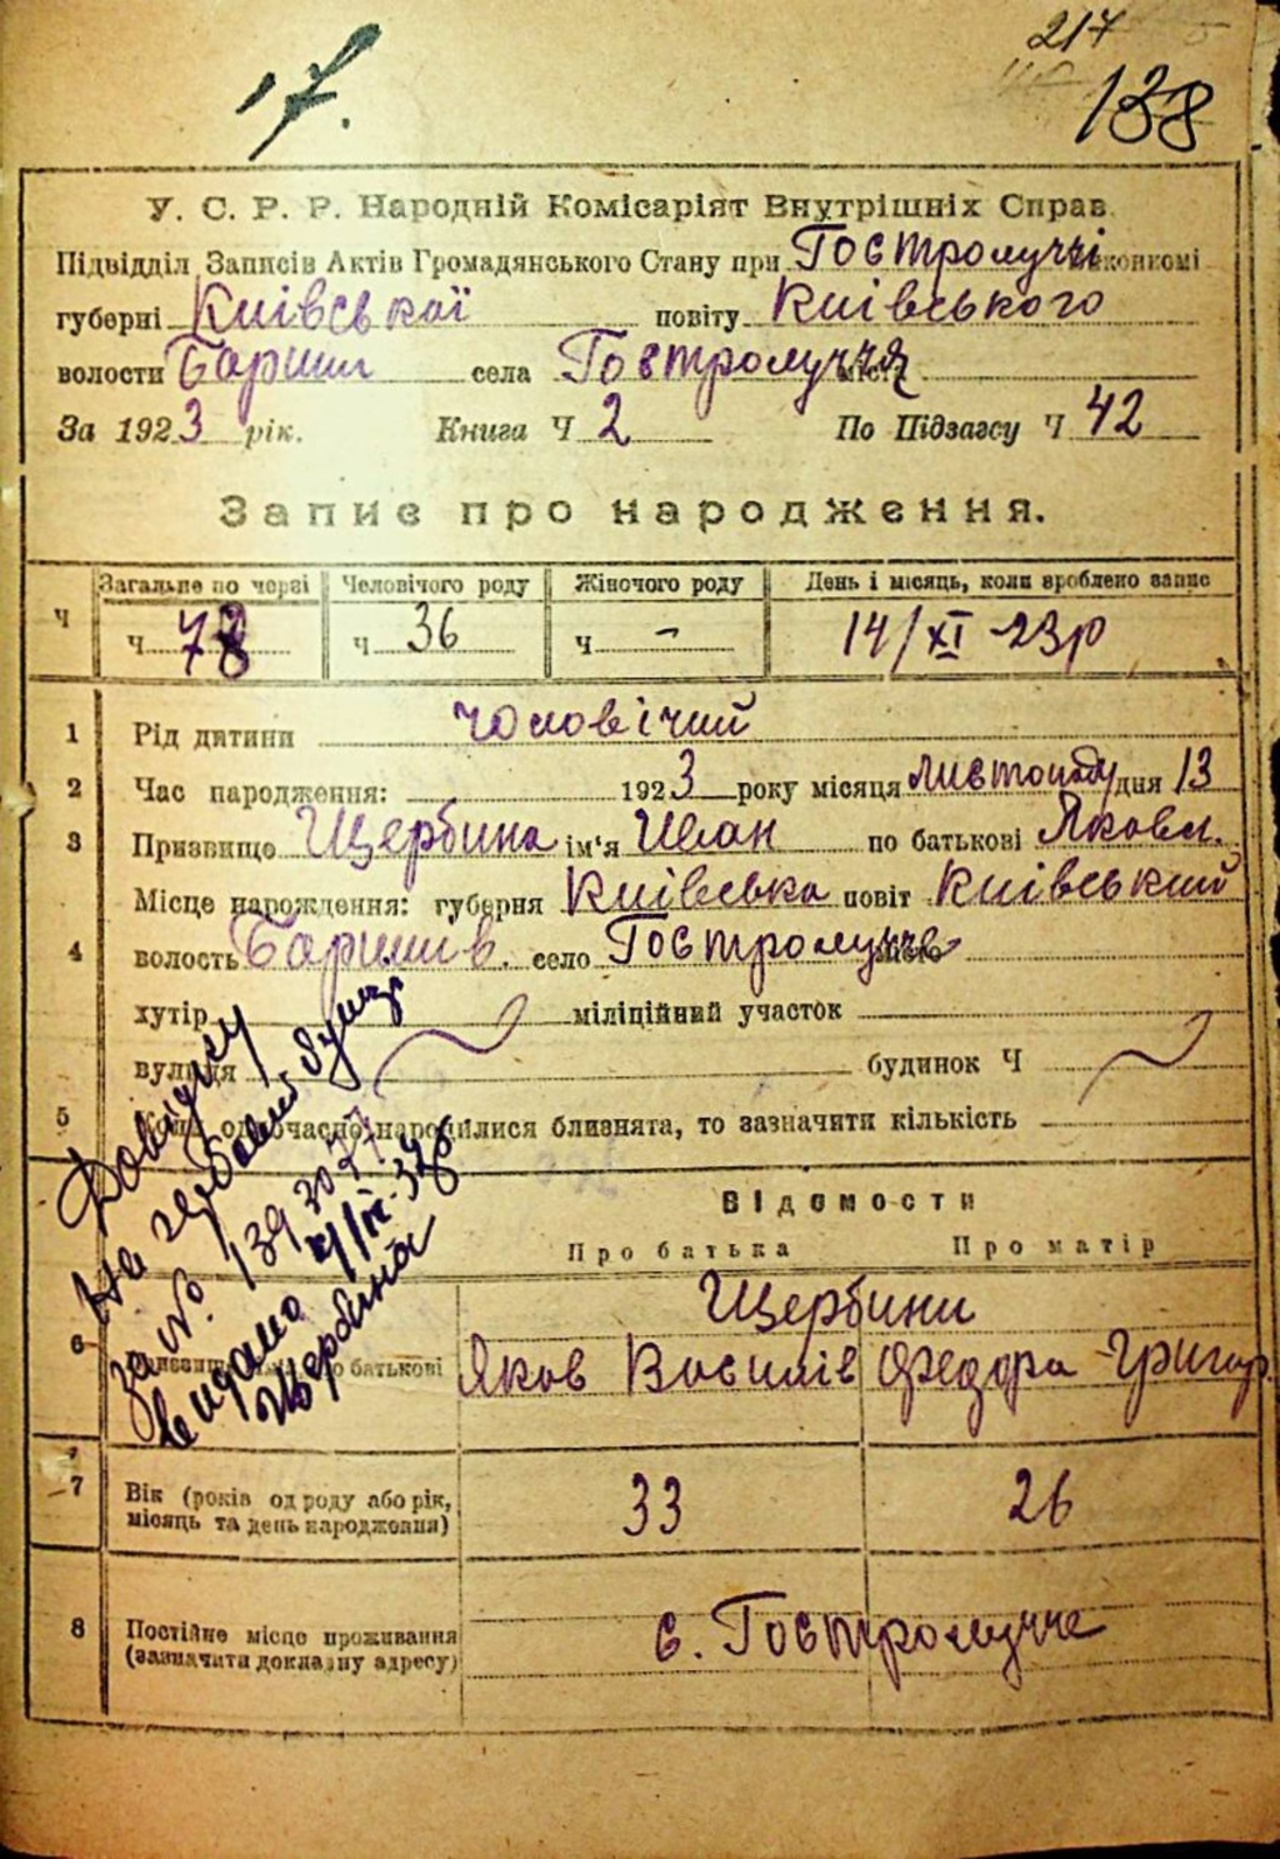 17.
217
138
У. С. Р. Р. Народній Комісаріят Внутрішніх Справ.
Підвідділ Записів Актів Громадянського Стану при Гостролуччі
губерні Київської повіту Київського
волости Баришп села Гостролуччя
За 1923 рік. Книга Ч 2 По Підзагсу Ч 42
Запис про народження.
Загальне по черзі Человічого роду Жіночого роду День і місяць, коли зроблено запис
Ч Ч 78 Ч 36 Ч — 14/XI 23р
1 Рід дитини чоловічий
2 Час народження: 1923 року місяця листопаду дня 13
3 Призвище Щербина ім'я Иван по батькові Яковл.
Місце нарождення: губерня Київська повіт Київський
4 волость Баришів. село Гостролучче
хутір міліційний участок
вулиця будинок Ч
5 Коли одночасно народилися близнята, то зазначити кількість
Відомости
Про батька Про матір
Щербини
6 по батькові Яков Василів Федора Григор.
7 Вік (років од роду або рік, 33 26
місяць та день народження)
8 Постійне місце проживання с. Гостролучче
(зазначити докладну адресу)
Довідку
на
за №. 139
видано
Щербина